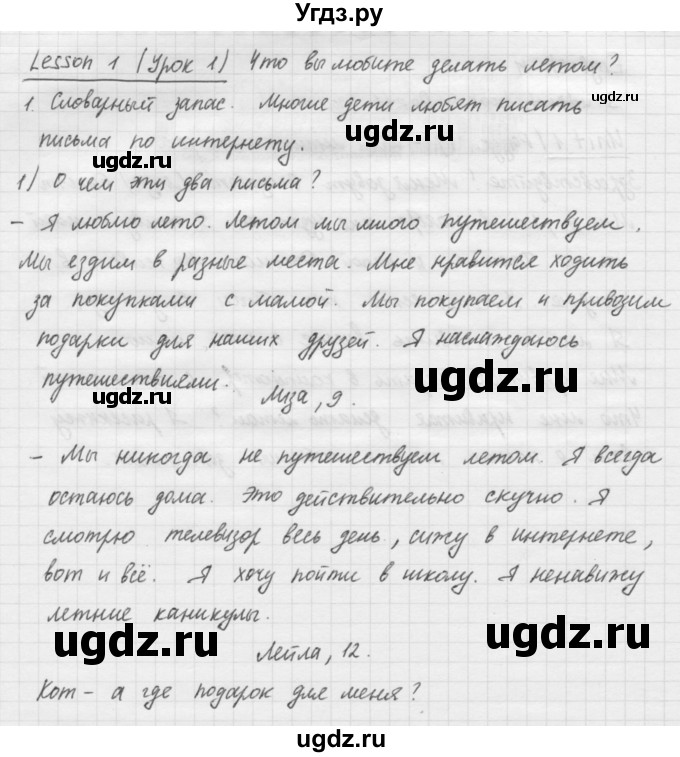 Угдз.ру
Lesson 1 (Урок 1) Что вы любите делать летом?
1. Словарный запас. Многие дети любят писать
письма по интернету.
1) О чем эти два письма?
- Я люблю лето. Летом мы много путешествуем.
Мы ездим в разные места. Мне нравится ходить
за покупками с мамой. Мы покупаем и привозим
подарки для наших друзей. Я наслаждаюсь
путешествиями.
Мza, 9.
- Мы никогда не путешествуем летом. Я всегда
остаюсь дома. Это действительно скучно. Я
смотрю телевизор весь день, сижу в интернете,
вот и всё. Я хочу пойти в школу. Я ненавижу
летние каникулы.
Лейла, 12.
Кот - а где подарок для меня?
ugdz.ru
ugdz.ru
ugdz.ru
ugdz.ru
ugdz.ru
ugdz.ru
ugdz.ru
ugdz.ru
ugdz.ru
ugdz.ru